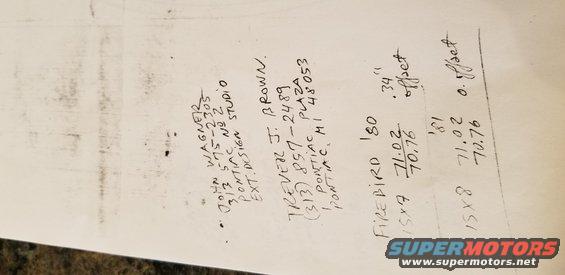 JOHN WAGNER
313 575-2305
PONTIAC NO 2
EXT. DESIGN STUDIO
TREVER J. BROWN.
(313) 857-2489
1 PONTIAC PLAZA
PONTIAC, MI 48053
FIREBIRD '80
15x7 71.02 .34"
70.76 offset
'81
15x8 71.02 0. offset
70.76
SUPERMOTORS
www.supermotors.net